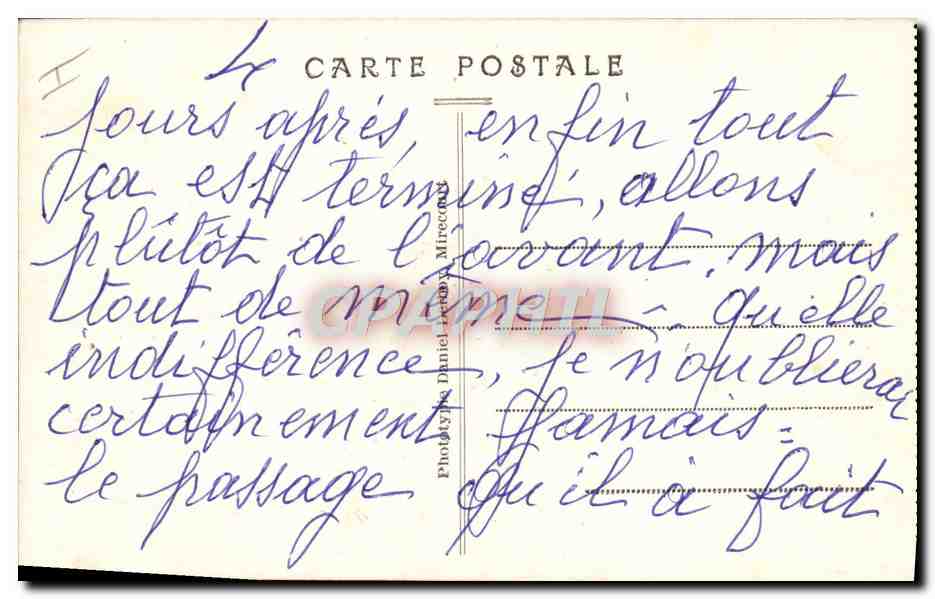 4
CARTE POSTALE
jours après, enfin tout
ça est términé, allons
plûtôt de l'avant, mais
tout de même, qu'elle
indifférence, je n'oublierai
certainement Jamais =
le passage qu'il à fait
Phototypie Daniel Delboy, Mirecourt
CPAPHIL